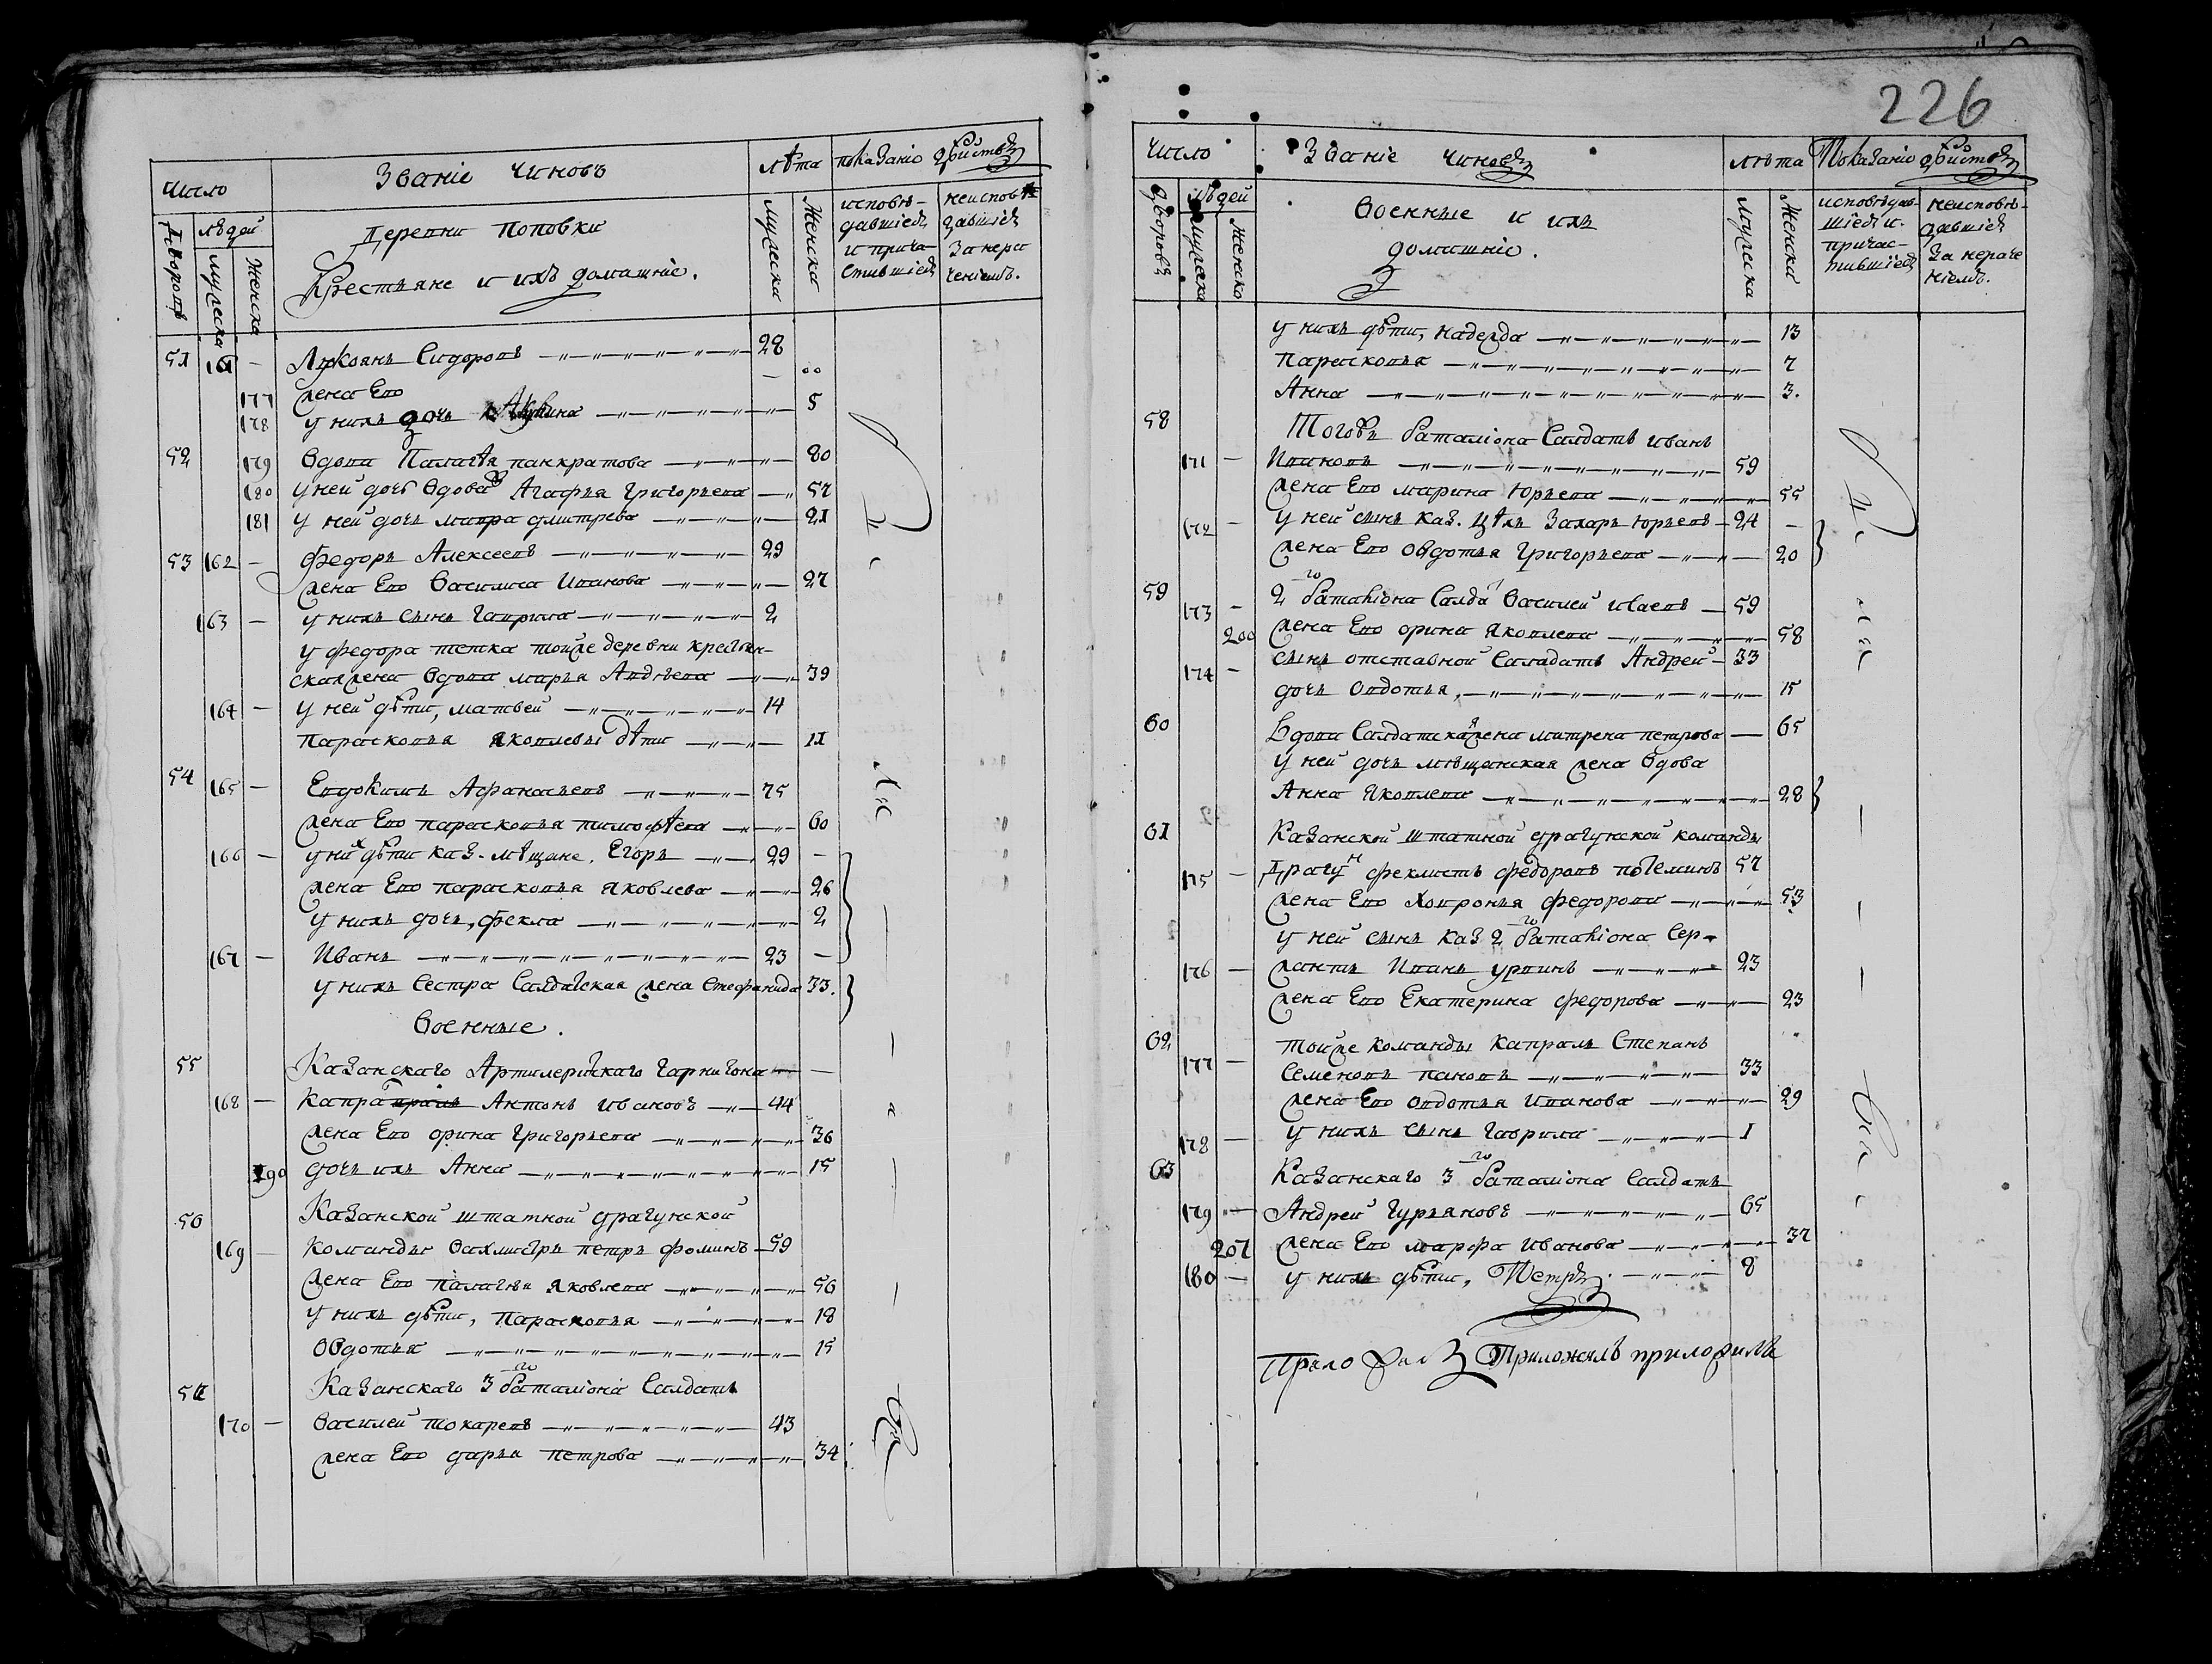 Число Званіе Чиновъ лѣта показаніе дѣйствъ
Дворовъ людей Деревни Поповки мужеска женска исповѣ- неисповѣ
мужеска женска Крестьяне и ихъ домашніе. давшіеся давшіеся
и прича- за нера
стившіеся ченіемъ.
51 161 – Лукоянъ Сидоровъ 28
177 жена Ево
178 у нихъ дочь 5
52 179 Вдова Палагѣя панкратова 80
180 у ней дочь вдова Агафья Григорьева 57
181 у ней дочь мавра дмитрева 21
53 162 – Федоръ Алексеевъ 29
жена Ево Василиса Иванова 27
163 – у нихъ сынъ Гаврила 2
у федора тетка тойже деревни крестьян-
ская жена вдова марья Андрѣева 39
164 – у ней дѣти, матвей 14
параскопья яковлевы дѣти 11
54 165 – Евдокимъ Афанасьевъ 75
жена Ево параскопья тимофѣева 60
166 – у них дѣти каз. мѣщане, Егоръ 29 –
жена Ево параскопья яковлева 26
у нихъ дочь, фекла 2
167 – Иванъ 23 –
у нихъ сестра салдатская жена Стефанида 33.
Военные.
55 Казанскаго Артилерискаго Гарнизона –
168 – капра Антонъ ивановъ 44
жена Ево орина григорьева 36
190 дочь ихъ Анна 15
56 Казанской штатной драгунской
169 – команды вахмистръ петръ фоминъ 59
жена Ево палагѣя яковлева 56
у нихъ дѣти, параскопья 18
Овдотья 15
57 Казанскаго 3го баталіона салдатъ
170 – Василей токаревъ 43
жена Ево дарья петрова 34
226
Число Званіе чиновъ лѣта Показаніе дѣйствъ
дворовъ людей Военные и ихъ мужеска женска исповѣдав- неисповѣ-
мужеска женско домашніе. шіеся и давшіеся
причас- за нераче
тившіеся ніемъ.
у нихъ дѣти, надежда 13
параскопья 7
Анна 3.
58 Тогожъ баталіона Салдатъ иванъ
171 – Ивановъ 59
жена Ево марина юрьева 55
172 – у ней сынъ каз. цѣх захаръ юрьевъ 24 –
жена Ево овдотья григорьева 20
59 2го баталіона салда Василей исаевъ
173 – 59
200 жена Ево орина яковлева 58
174 – сынъ отставной салдатъ Андрей 33
дочь овдотья, 15
60 Вдова салдатская жена матрена петрова 65
у ней дочь мѣщанская жена вдова
Анна яковлева 28
61 Казанской штатной драгунской команды
175 – Драгун феклистъ федоровъ потемин 57
жена Ево ховронья федорова 53
у ней сынъ каз 2го баталіона сер-
176 – жантъ Иванъ 23
жена Ево Екатерина федорова 23
62 тойже команды капралъ Степанъ
177 – семеновъ пановъ 33
жена Ево овдотья иванова 29
178 – у нихъ сынъ гаврила 1
63 Казанскаго 3го баталіона салдатъ
179 – Андрей гурьяновъ 65
207 жена Ево марфа иванова 37
180 – у нихъ дѣти, Петръ. 8
Приложилъ приложилъ